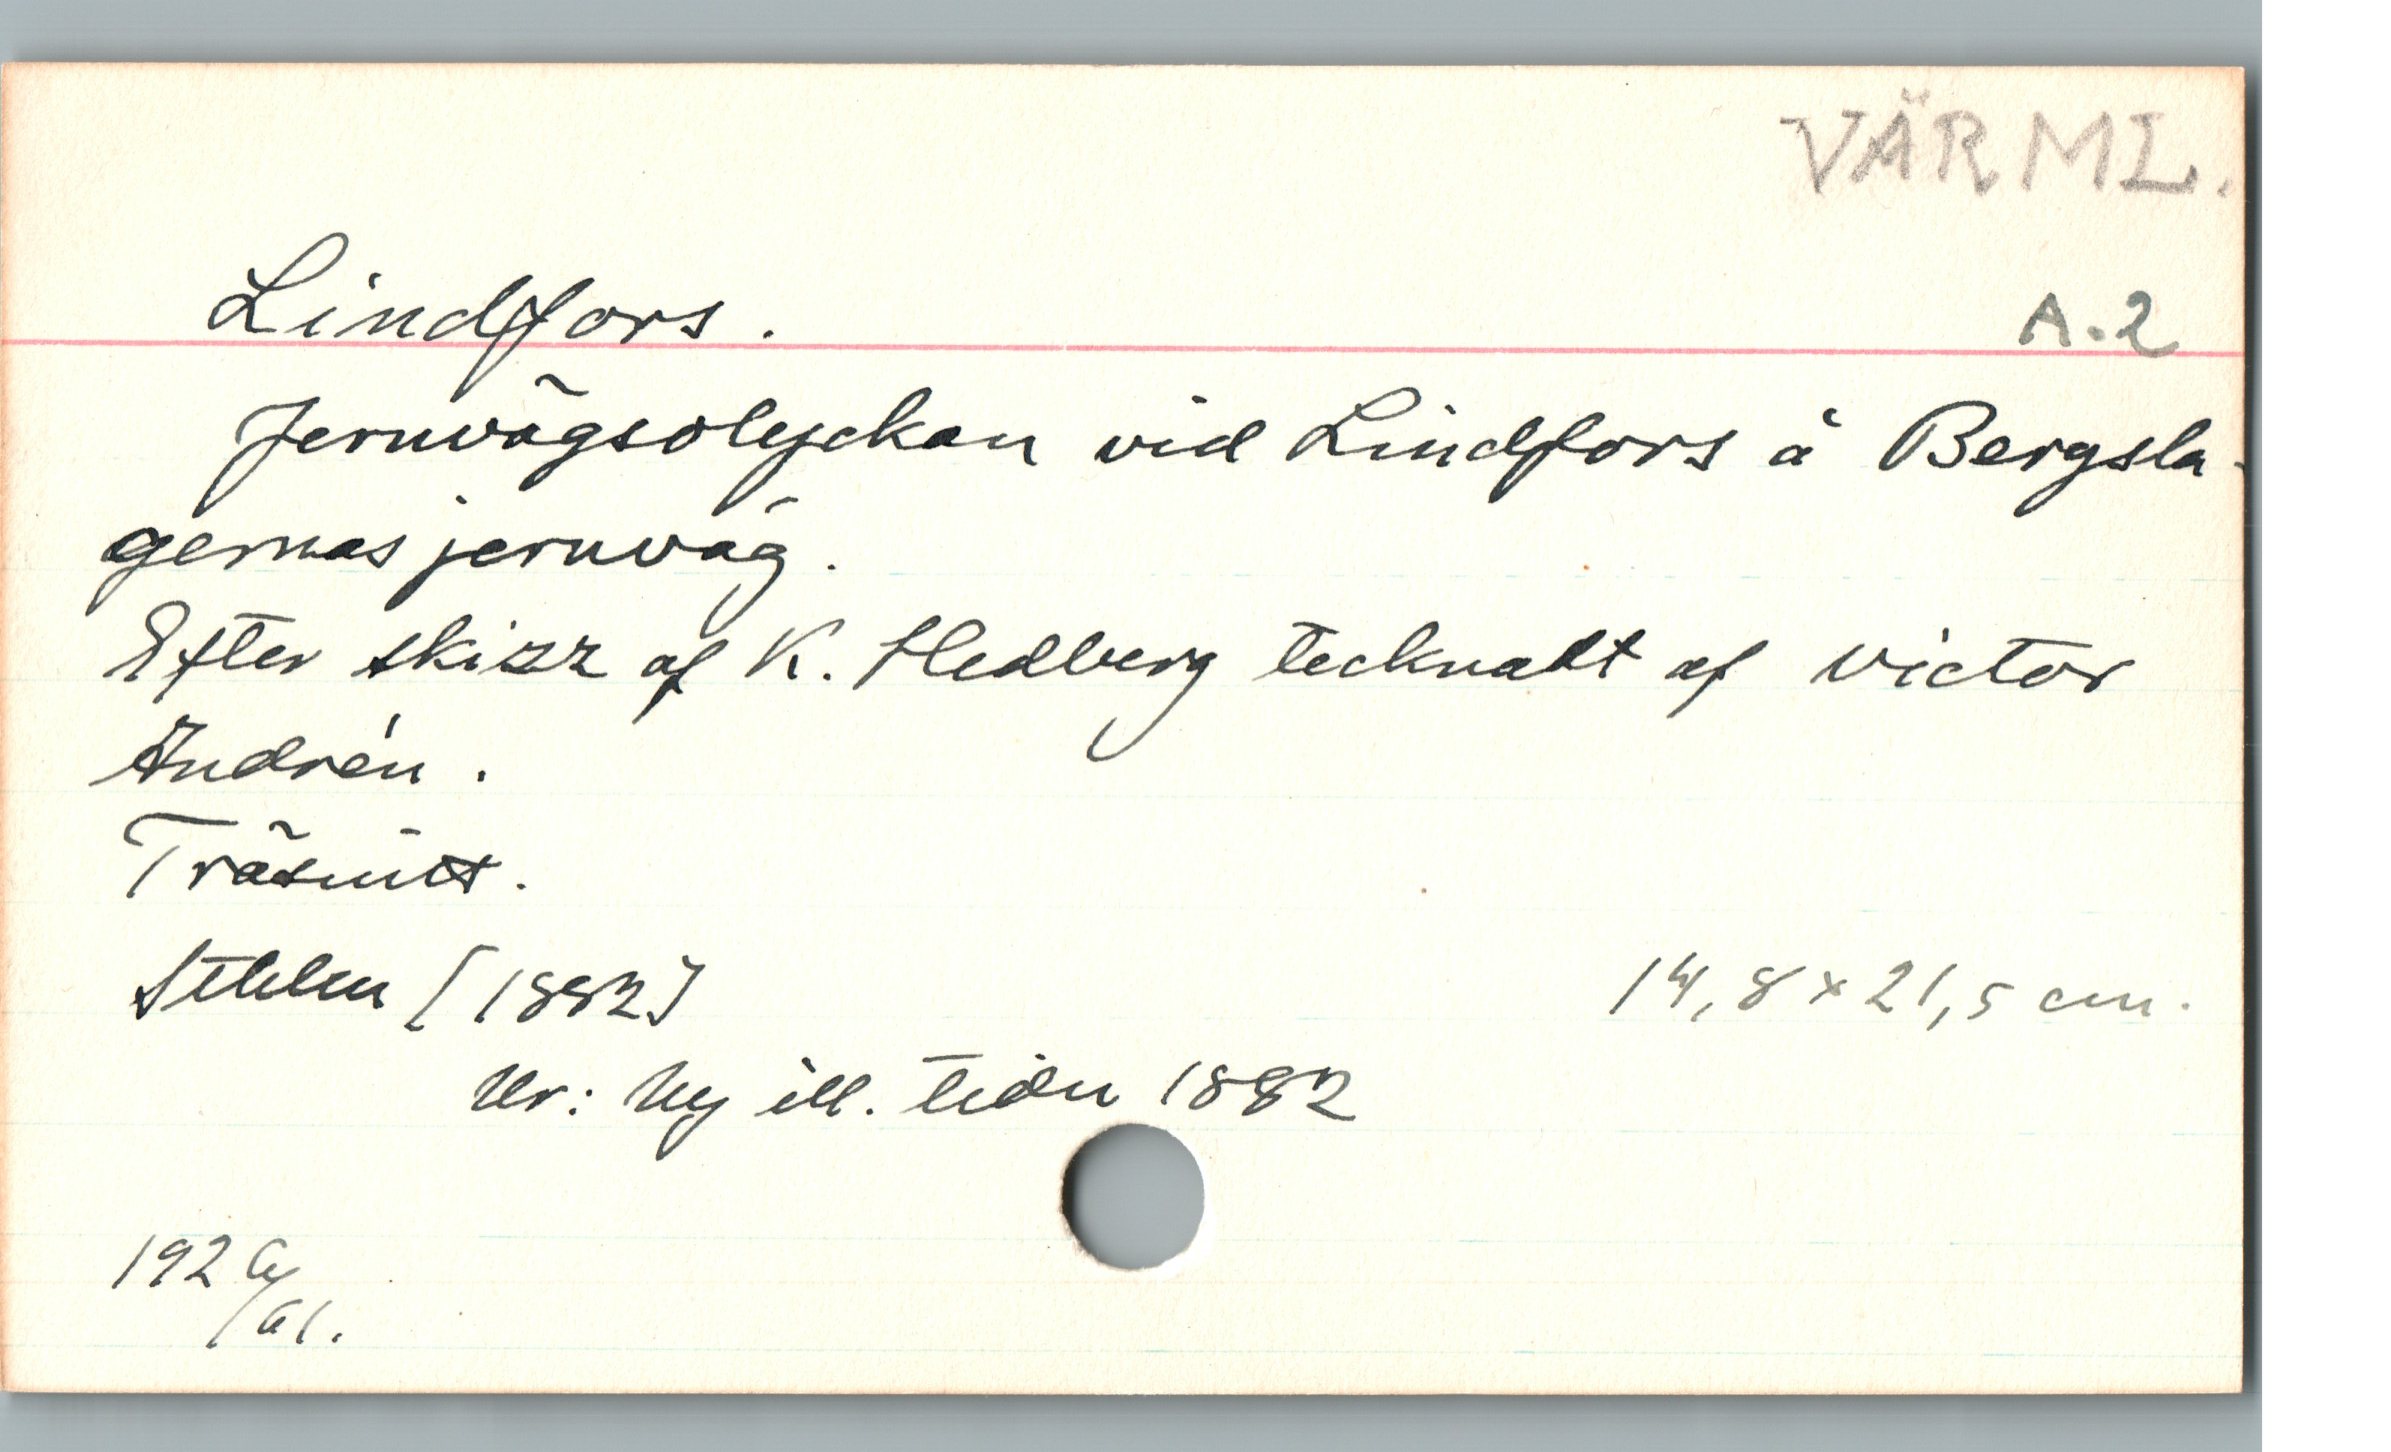 VÄRML.
Lindfors. A.2
Jernvägsolyckan vid Lindfors å Bergsla-
gernas jernväg.
Efter skizz af K. Hedberg tecknadt af Victor
Andrén.
Träsnitt.
Sthlm [1882] 14,8 x 21,5 cm.
Ur: Ny ill. tidn 1882
192
/61.